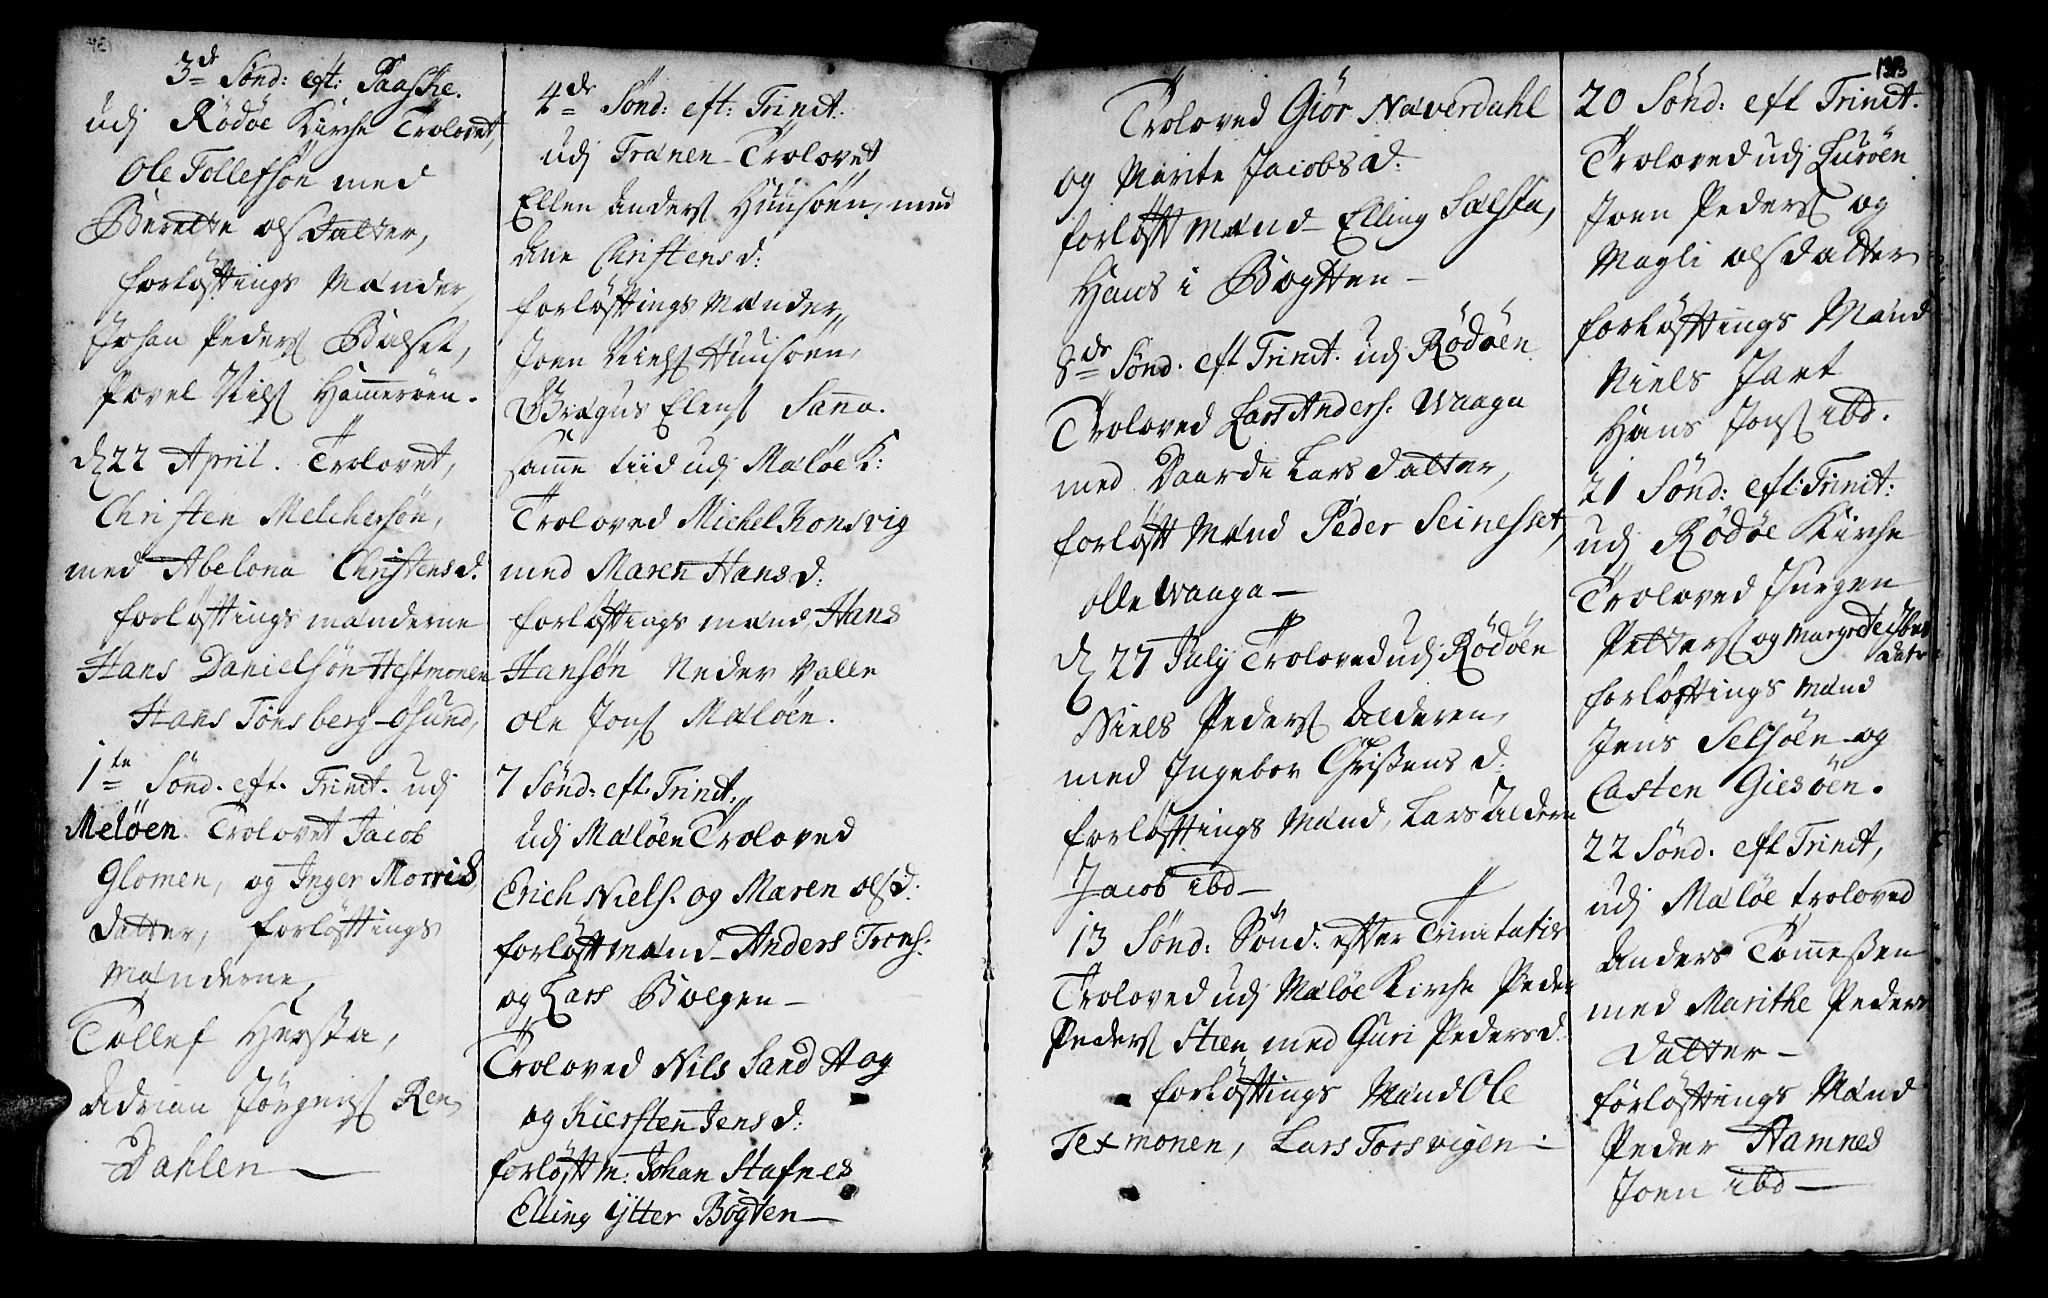 3de Sönd: eft: Paaske.
udj Rödöe Kirche Trolovet,
Ole Tollefsön med
Berette olsdatter,
forlöftings Mænder,
Johan Peders Bolset,
Povel Nils Hamerøen.
d 22 April. Trolovet,
Christen Melchersön,
med Abelona Christensd.
forlöftings mænderne
Hans Danielsön Hestmonen
Hans Tönsberg osund,
1te Sönd. eft. Trinit. udj
Melöen. Trolovet Jacob
Glomen, og Inger Morrids
datter, forlöftings
Mænderne,
Tollef
Adrian Jörgens Ren
Dahlen —
4de Sönd: eft: Trinit.
udj Trænen Trolovet
Ellen Anders Huusöen, med
Ane Christensd:
forlöftings Mænder,
Joen Niels Huusöen,
Elens Sanna.
samme tiid udj Mæløe K:
Troloved Michel Konsvig
med Maren Hansd:
forlöftings mænd, Hans
Hansön Neder Valle
Ole Jons Mæløen.
7 Sönd: eft. Trinit.
udj Mæløen Troloved
Erich Niels. og Maren olsd:
forlöft mænd Anders Trons:
og Lars Bolgen —
Troloved Nils Sand A og
og Kiersten Jensd:
forlöft m: Johan Stafnes
Elling Ytter Bögten —
133
Troloved Giör Næverdahl
og Marite Jacobsd:
forlöft mænd Elling Salsta,
Hans i Bogtten —
8de Sönd. eft Trinit. udj Rödöen
Troloved Lars Anders. Waaga
med Daarde Larsdatter,
forlöft Mænd Peder Seinesset,
olle Waaga —
d 27 July Troloved udj Rödöen
Niels Peders Alderen,
med Ingebor Christensd:
forlöftings Mænd, Lars Aldern
Jacob ibd —
13 Sönd: Sönd: efter Trinitatis
Troloved udj Mæløe Kirche Peder
Peders Steen med Guri Pedersd.
forlöftings Mænd Ole
Texmonen, Lars Torsvigen.
20 Sönd: eft Trinit.
Troloved udj Luröen
Joen Peders og
Magli olsdatter
forlöftings Mænd
Niels Jart
Hans Jons ibd.
21 Sönd: eft: Trinit:
udj Rödöe Kirche
Troloved Jürgen
Petters og Margrete
datr
forlöftings Mænd
Jens Selsöen og
Casten Giesöen.
22 Sönd. eft Trinit,
udj Mæløe troloved
Anders Tomessen
med Marithe Peders
datter —
förlöftings Mænd
Peder Hamnes
Joen ibd —